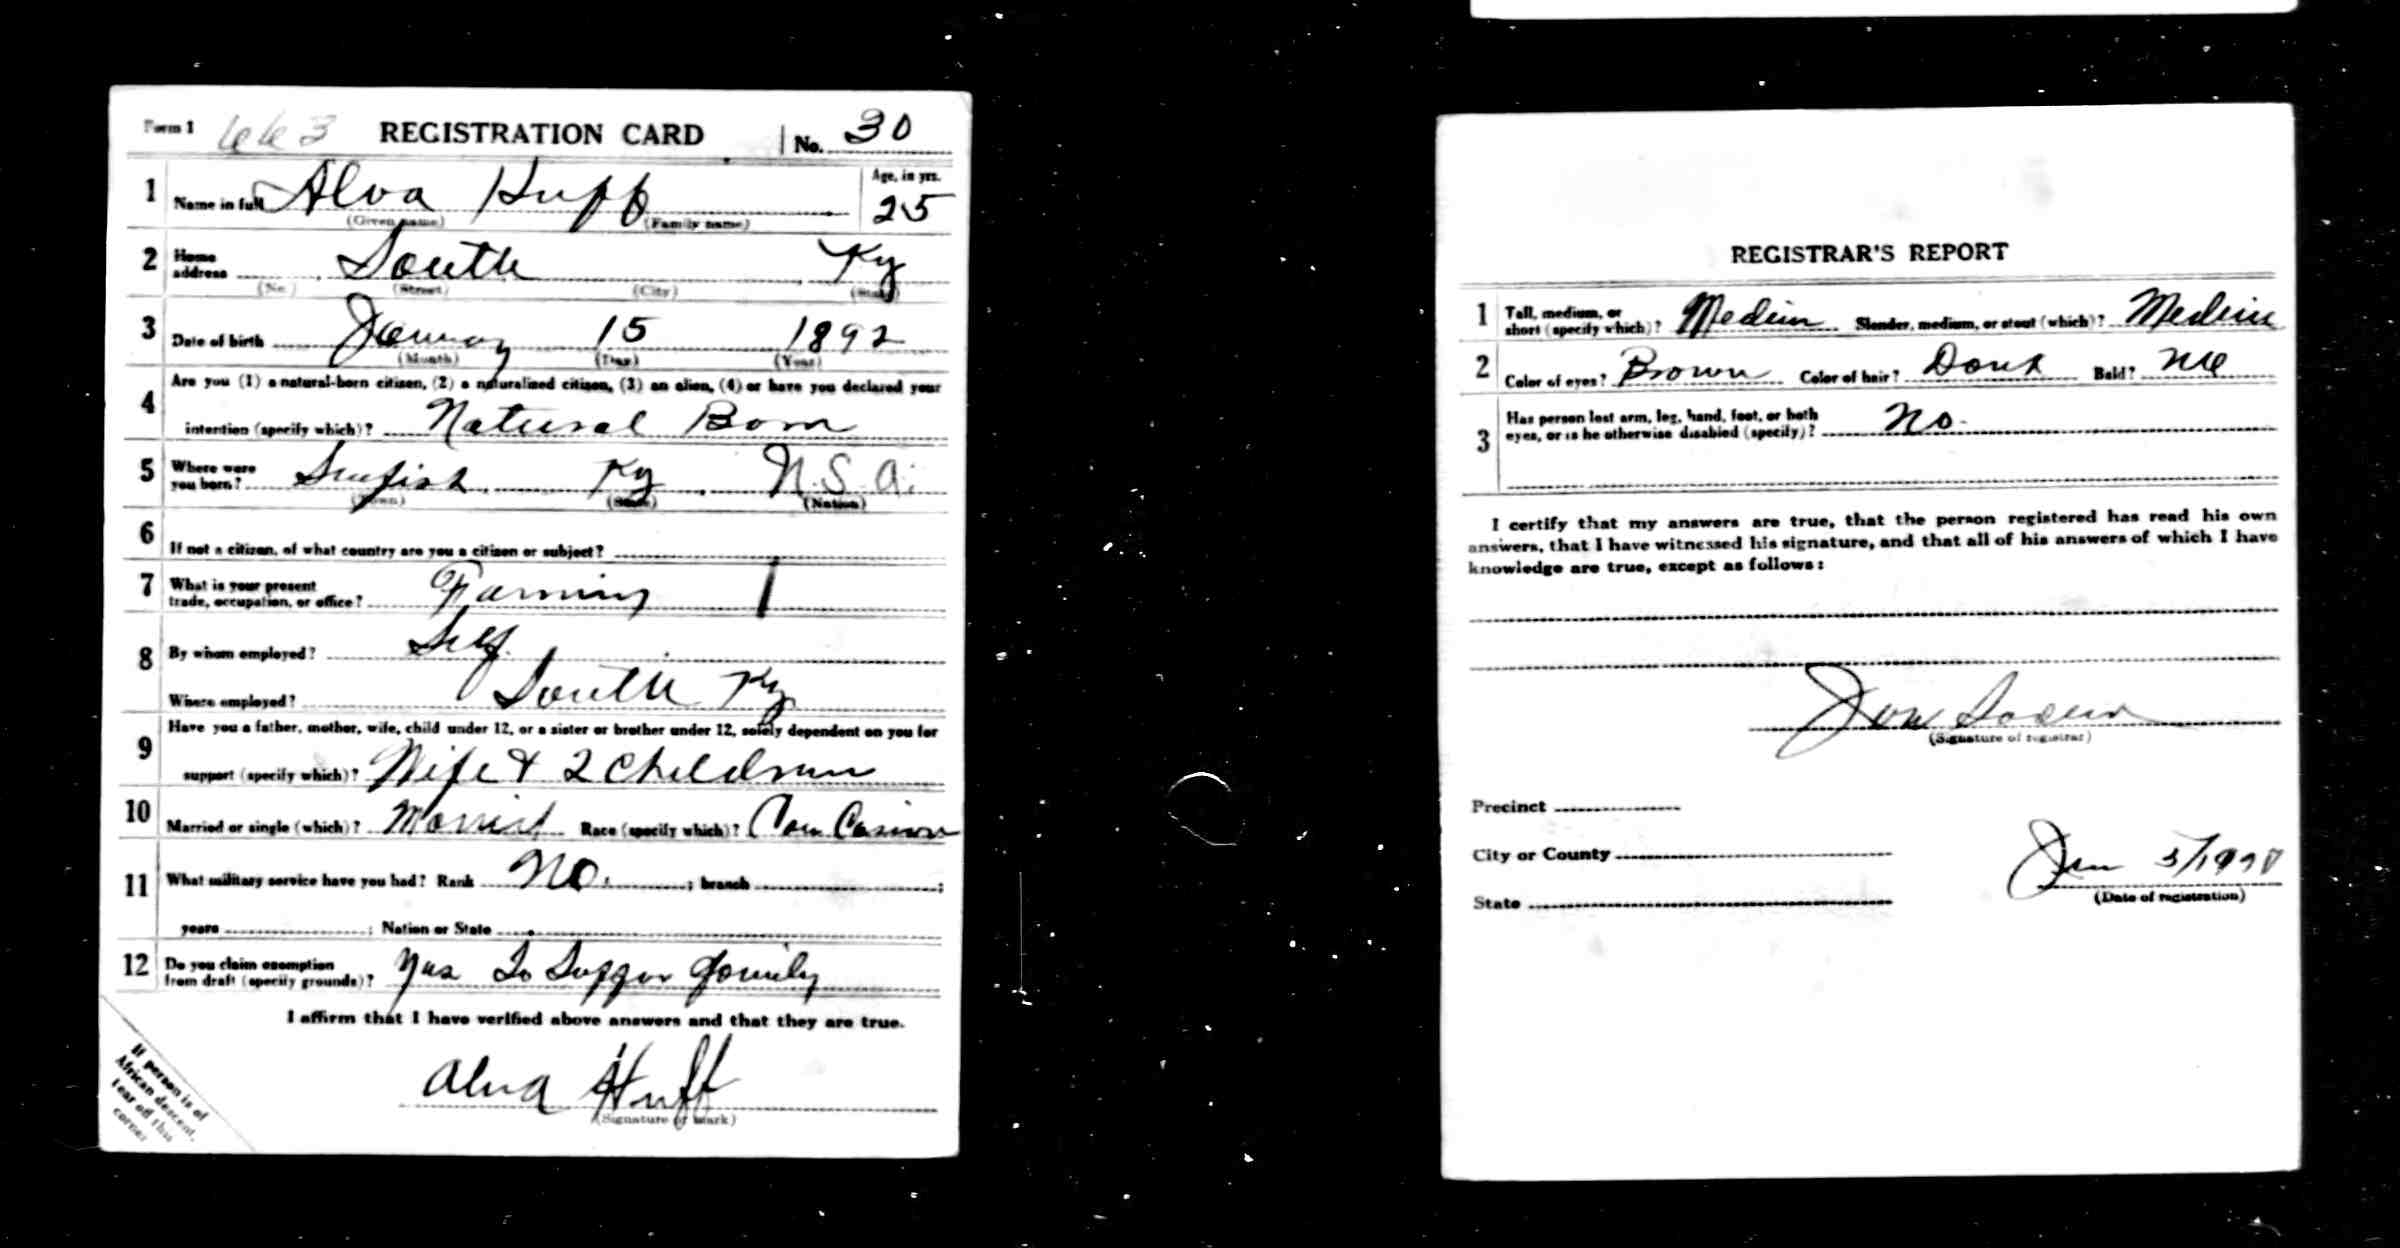 Form 1 663 REGISTRATION CARD No. 30
1 Name in full Alva Huff Age, in yrs. 25
(Given name) (Family name)
2 Home address South Ky
(No.) (Street) (City) (State)
3 Date of birth January 15 1892
(Month) (Day) (Year)
4 Are you (1) a natural-born citizen, (2) a naturalized citizen, (3) an alien, (4) or have you declared your
intention (specify which)? Natural Born
5 Where were you born? Sunfish Ky U.S.A.
(Town) (State) (Nation)
6 If not a citizen, of what country are you a citizen or subject?
7 What is your present
trade, occupation, or office? Farming
8 By whom employed? Self
Where employed? South Ky
9 Have you a father, mother, wife, child under 12, or a sister or brother under 12, solely dependent on you for
support (specify which)? Wife & 2 Children
10 Married or single (which)? Married Race (specify which)?
11 What military service have you had? Rank No. ; branch ;
years ; Nation or State
12 Do you claim exemption
from draft (specify grounds)? Yes To Suppor family
I affirm that I have verified above answers and that they are true.
Alva Huff
(Signature or mark)
If person is of
African descent,
tear off this
corner
REGISTRAR'S REPORT
1 Tall, medium, or
short (specify which)? Medium Slender, medium, or stout (which)? Medium
2 Color of eyes? Brown Color of hair? Dark Bald? No
3 Has person lost arm, leg, hand, foot, or both
eyes, or is he otherwise disabled (specify)? No.
I certify that my answers are true, that the person registered has read his own
answers, that I have witnessed his signature, and that all of his answers of which I have
knowledge are true, except as follows:
(Signature of registrar)
Precinct
City or County
State
(Date of registration)